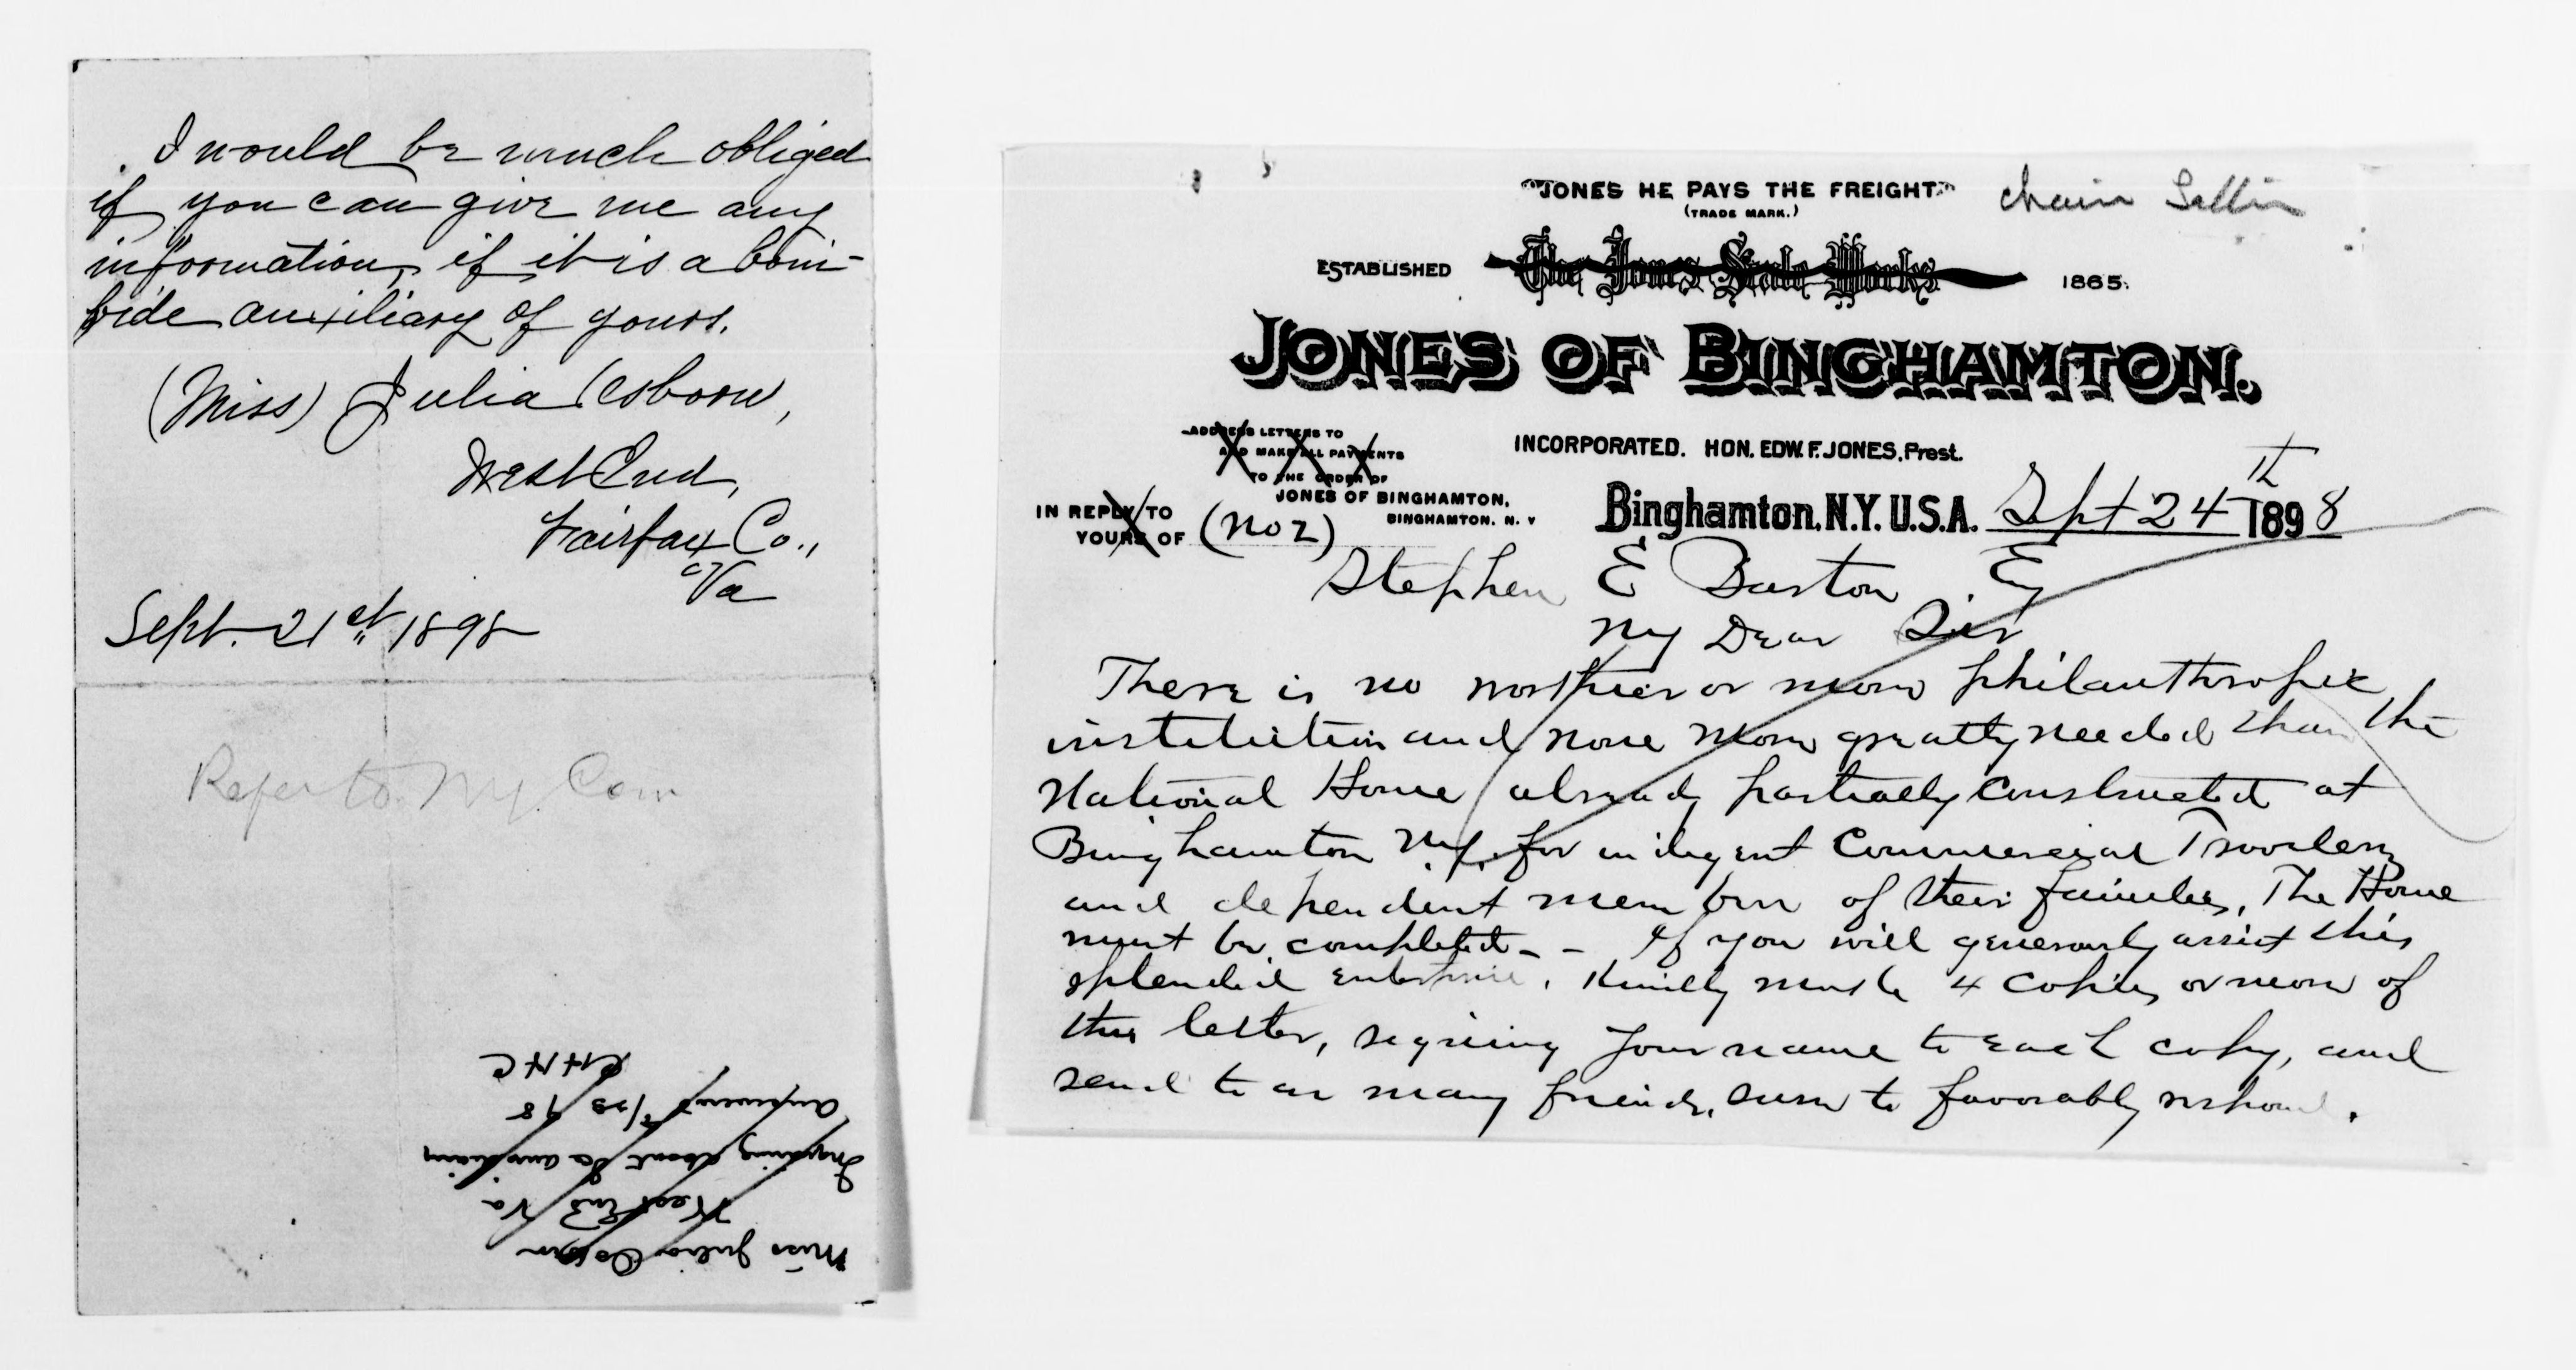 I would be much obliged
if you can give me any
information, if it is a boni-
fide auxiliary of yours.
(Miss) Julia Osborn,
West End,
Fairfax Co.,
Va
Sept. 21st 1898
Refer to N.Y. Com
Miss Julia Osborn
West End Va
Inquiring about to auxiliary
answered 9/23/98
CHHC
"JONES HE PAYS THE FREIGHT"
(TRADE MARK.)
chain Letter
ESTABLISHED The Jones Scale Works 1865.
JONES OF BINGHAMTON.
ADDRESS LETTERS TO
AND MAKE ALL PAYMENTS
TO THE ORDER OF
JONES OF BINGHAMTON,
BINGHAMTON. N. Y
INCORPORATED. HON. EDW. F. JONES, Prest.
IN REPLY TO
YOURS OF (No 2)
Binghamton, N.Y. U.S.A. Sept 24th 1898
Stephen E Barton Esq
My Dear Sir
There is no worthier or more philanthropic
institution and none more greatly needed than the
National Home already partially constructed at
Binghamton N.Y. for indigent Commercial Travelers
and dependent members of their families. The Home
must be completed - - If you will generously assist this
splendid enterprise, Kindly make 4 copies or more of
this letter, signing your name to each copy, and
send to as many friends, sure to favorably respond.